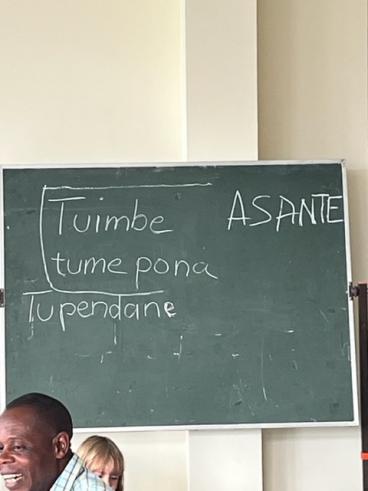 Tuimbe
tume pona
Tupendane
ASANTE